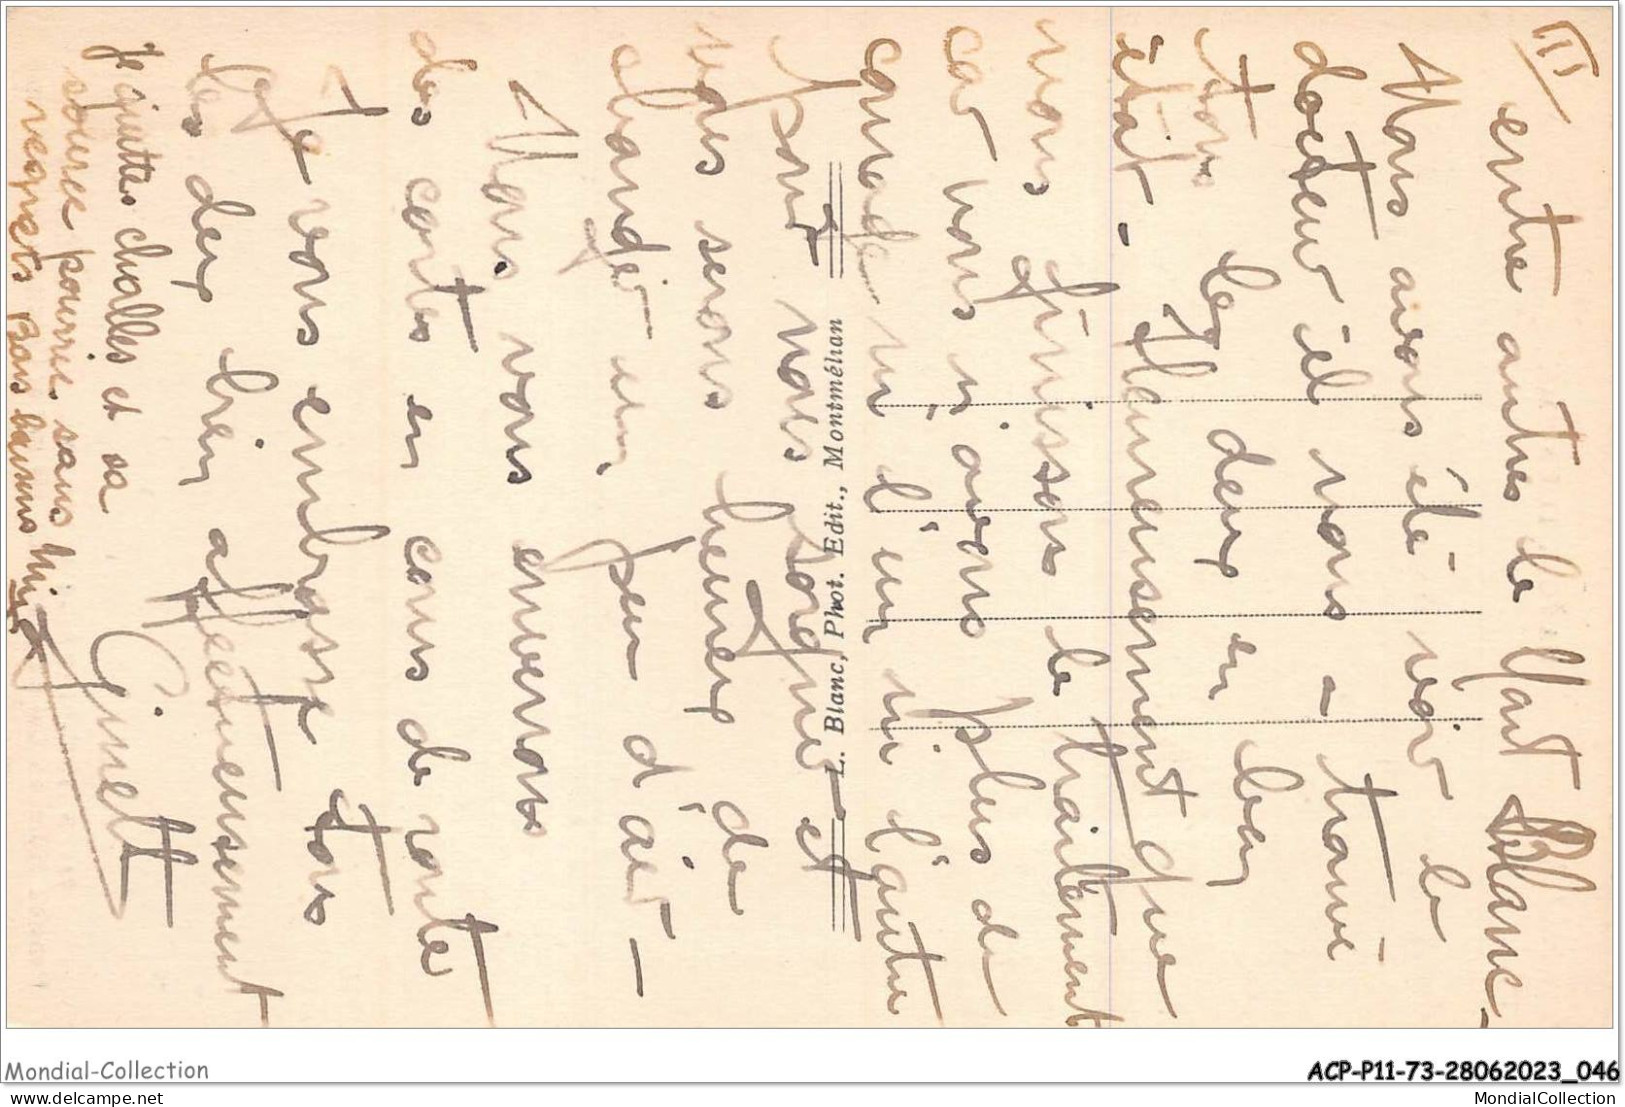 III
entre autres le Mont Blanc -
Nous avons été voir le
docteur il nous a trouvé
tous les deux en bon
état - Heureusement que
nous finissons le traitement
car nous n'avons plus de
camarade ni l'un ni l'autre
pour nous soigner et
nous serons heureux de
changer un peu d'air -
Nous vous enverrons
des cartes en cours de route
Je vous embrasse tous
les deux bien affectueusement
Ginette
Je quitte challes et sa
source pourrie sans
regrets Bons baisers
L. Blanc, Phot. Edit., Montmélian
Mondial-Collection
ACP-P11-73-28062023_046
mondial-collection.net
MondialCollection